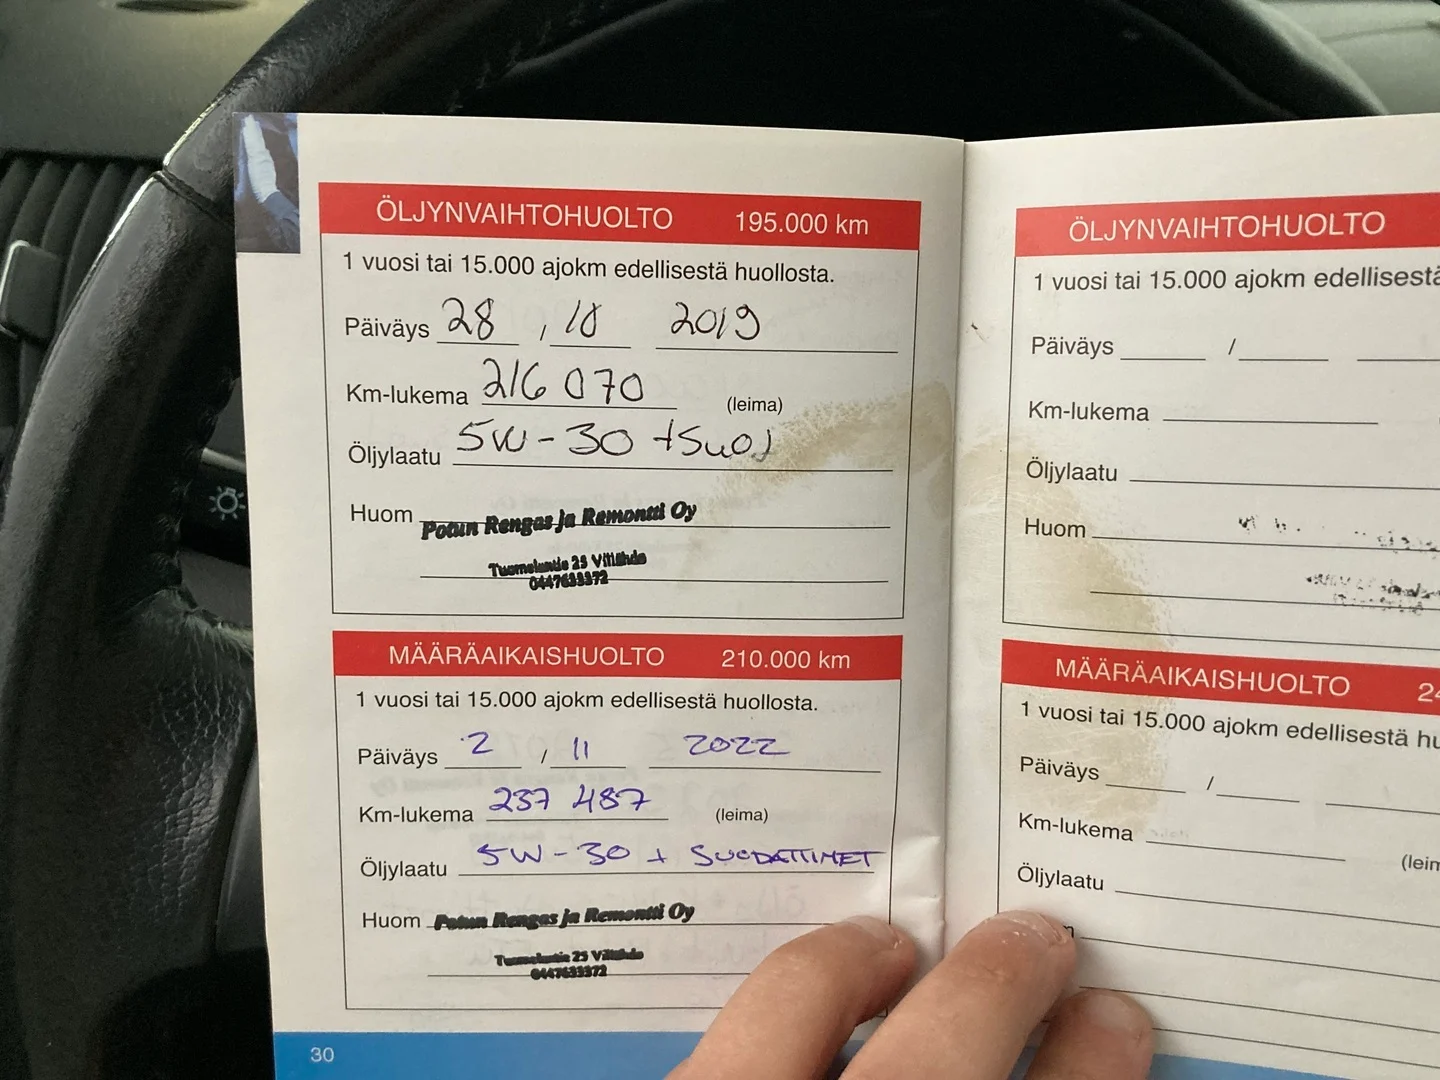 ÖLJYNVAIHTOHUOLTO 195.000 km
1 vuosi tai 15.000 ajokm edellisestä huollosta.
Päiväys 28 , 10 2019
Km-lukema 216 070 (leima)
Öljylaatu 5W-30 +Suod
Huom Potun Rengas ja Remontti Oy
0447633372
MÄÄRÄAIKAISHUOLTO 210.000 km
1 vuosi tai 15.000 ajokm edellisestä huollosta.
Päiväys 2 / 11 2022
Km-lukema 237 487 (leima)
Öljylaatu 5W-30 + SUODATTIMET
Huom Potun Rengas ja Remontti Oy
0447633372
30
ÖLJYNVAIHTOHUOLTO
1 vuosi tai 15.000 ajokm edellisestä
Päiväys /
Km-lukema
Öljylaatu
Huom
MÄÄRÄAIKAISHUOLTO 24
1 vuosi tai 15.000 ajokm edellisestä hu
Päiväys /
Km-lukema
(leim
Öljylaatu